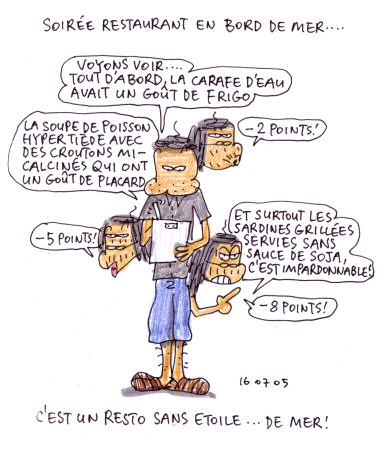 SOIRÉE RESTAURANT EN BORD DE MER....
VOYONS VOIR....
TOUT D'ABORD, LA CARAFE D'EAU
AVAIT UN GOÛT DE FRIGO
- 2 POINTS!
LA SOUPE DE POISSON
HYPER TIÈDE AVEC
DES CROUTONS MI-
CALCINÉS QUI ONT
UN GOÛT DE PLACARD
- 5 POINTS!
ET SURTOUT LES
SARDINES GRILLÉES
SERVIES SANS
SAUCE DE SOJA,
C'EST IMPARDONNABLE!
- 8 POINTS!
2
16 07 05
C'EST UN RESTO SANS ETOILE... DE MER!